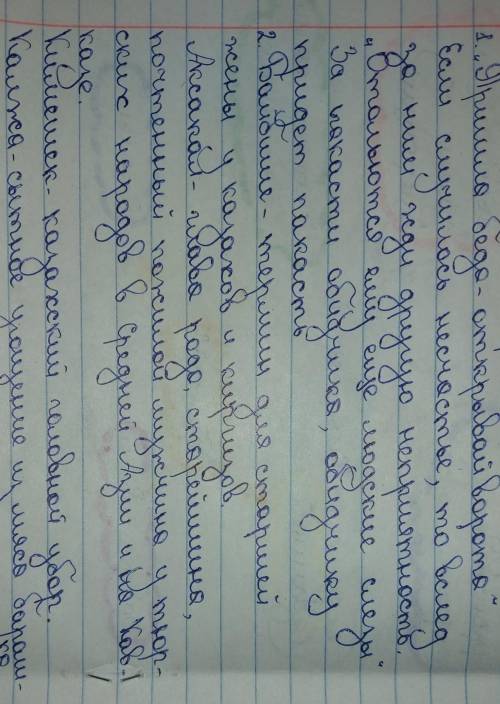 1. „Пришла беда - открывай ворота"
Если случилось несчастье, то вслед
за ним жди другую неприятность.
„Отольются ему еще людские слезы"
За пакасти обидчика, обидчику
придет пакасть
2. Байбише - термин для старшей
жены у казахов и киргизов.
Аксакал - глава рода, старейшина,
почтенный пожилой мужчина у тюр-
ских народов в Средней Азии и на Кав-
казе.
Кимешек - казахский головной убор.
Калжа - сытное угощение из мяса баран-